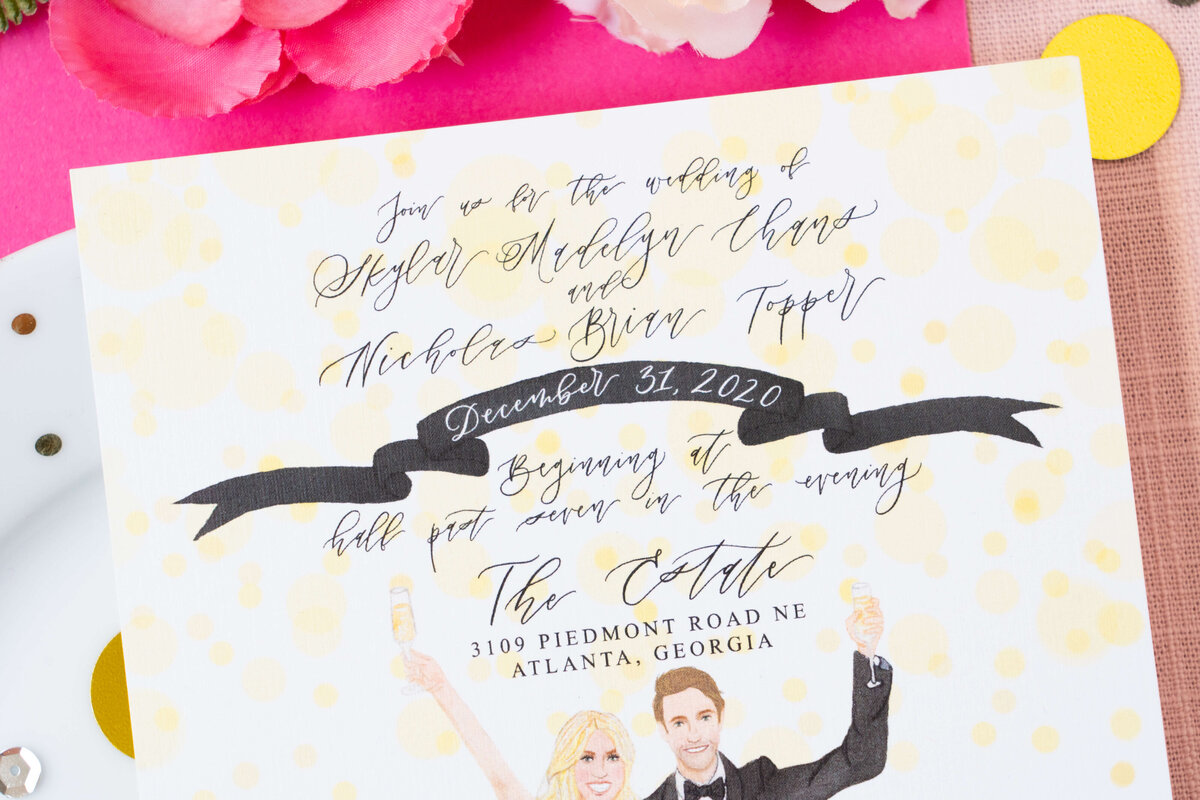 Join us for the wedding of
Skylar Madelyn Chans
and
Nicholas Brian Topper
December 31, 2020
Beginning at
half past seven in the evening
The Estate
3109 PIEDMONT ROAD NE
ATLANTA, GEORGIA